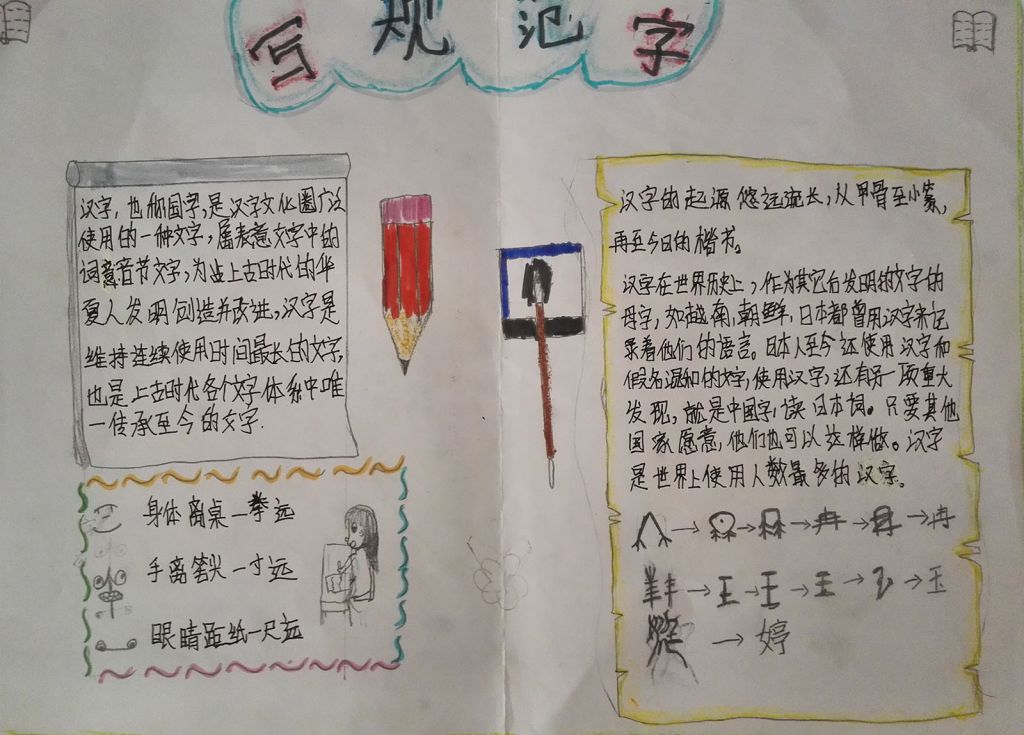 写规范字
汉字，也称国字，是汉字文化圈广泛
使用的一种文字，属表意文字中的
词意音节文字，为上古时代的华
夏人发明创造并改进，汉字是
维持连续使用时间最长的文字，
也是上古时代各个文字体系中唯
一传承至今的文字.
身体离桌一拳远
手离笔尖一寸远
眼睛距纸一尺远
汉字的起源悠远流长，从甲骨至小篆，
再至今日的楷书。
汉字在世界历史上，作为其它后发明的文字的
母字，如越南，朝鲜，日本都曾用汉字来记
录着他们的语言。日本人至今还使用汉字和
假名混和的文字，使用汉字，还有另一项重大
发现，就是中国字，读日本词。只要其他
国家愿意，他们也可以这样做。汉字
是世界上使用人数最多的汉字。
→ → → 冉 → → 冉
→ 王 → 王 → 王 → → 玉
→ 婷